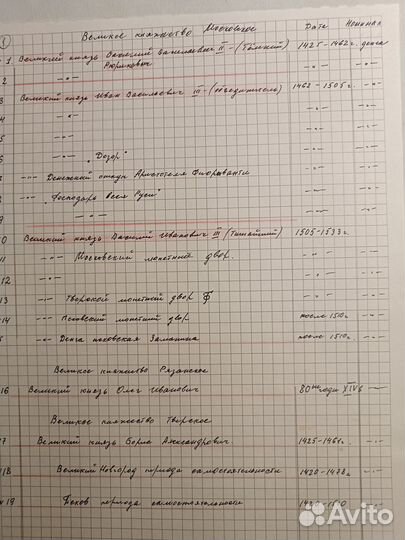 1 Великое княжество Московское Дата Номинал
1 Великий князь Василий Васильевич II - (Тёмный) 1425-1462г. денга
Рюрикович
2 -"- -"- -"-
3 Великий князь Иван Васильевич III - 1462-1505г. -"-
4 -"- -"- -"-
-"- -"- -"-
6 -"- "Дозор" -"- -"-
-"- Денежный откуп Аристотеля Фиорыванти -"- -"-
"Господарь Всея Руси" -"- -"-
9 -"- -"- -"-
0 Великий князь Василий Иванович III - 1505-1533г.
11 -"- Московский монетный двор. -"- -"-
12 -"- -"- -"-
13 -"- Тверской монетный двор -"- -"-
14 -"- Псковский монетный двор после 1510г. -"-
5 -"- Денга псковская Заманина после 1510г. -"-
Великое княжество Рязанское
16 Великий князь Олег Иванович 80ые годы XIVв -"-
Великое княжество Тверское
7 Великий князь Борис Александрович. 1425-1461г. -"-
18 Великий Новгород периода самостоятельности 1420-1478г -"-
19 Псков периода самостоятельности 1420-1510 -"-
Avito